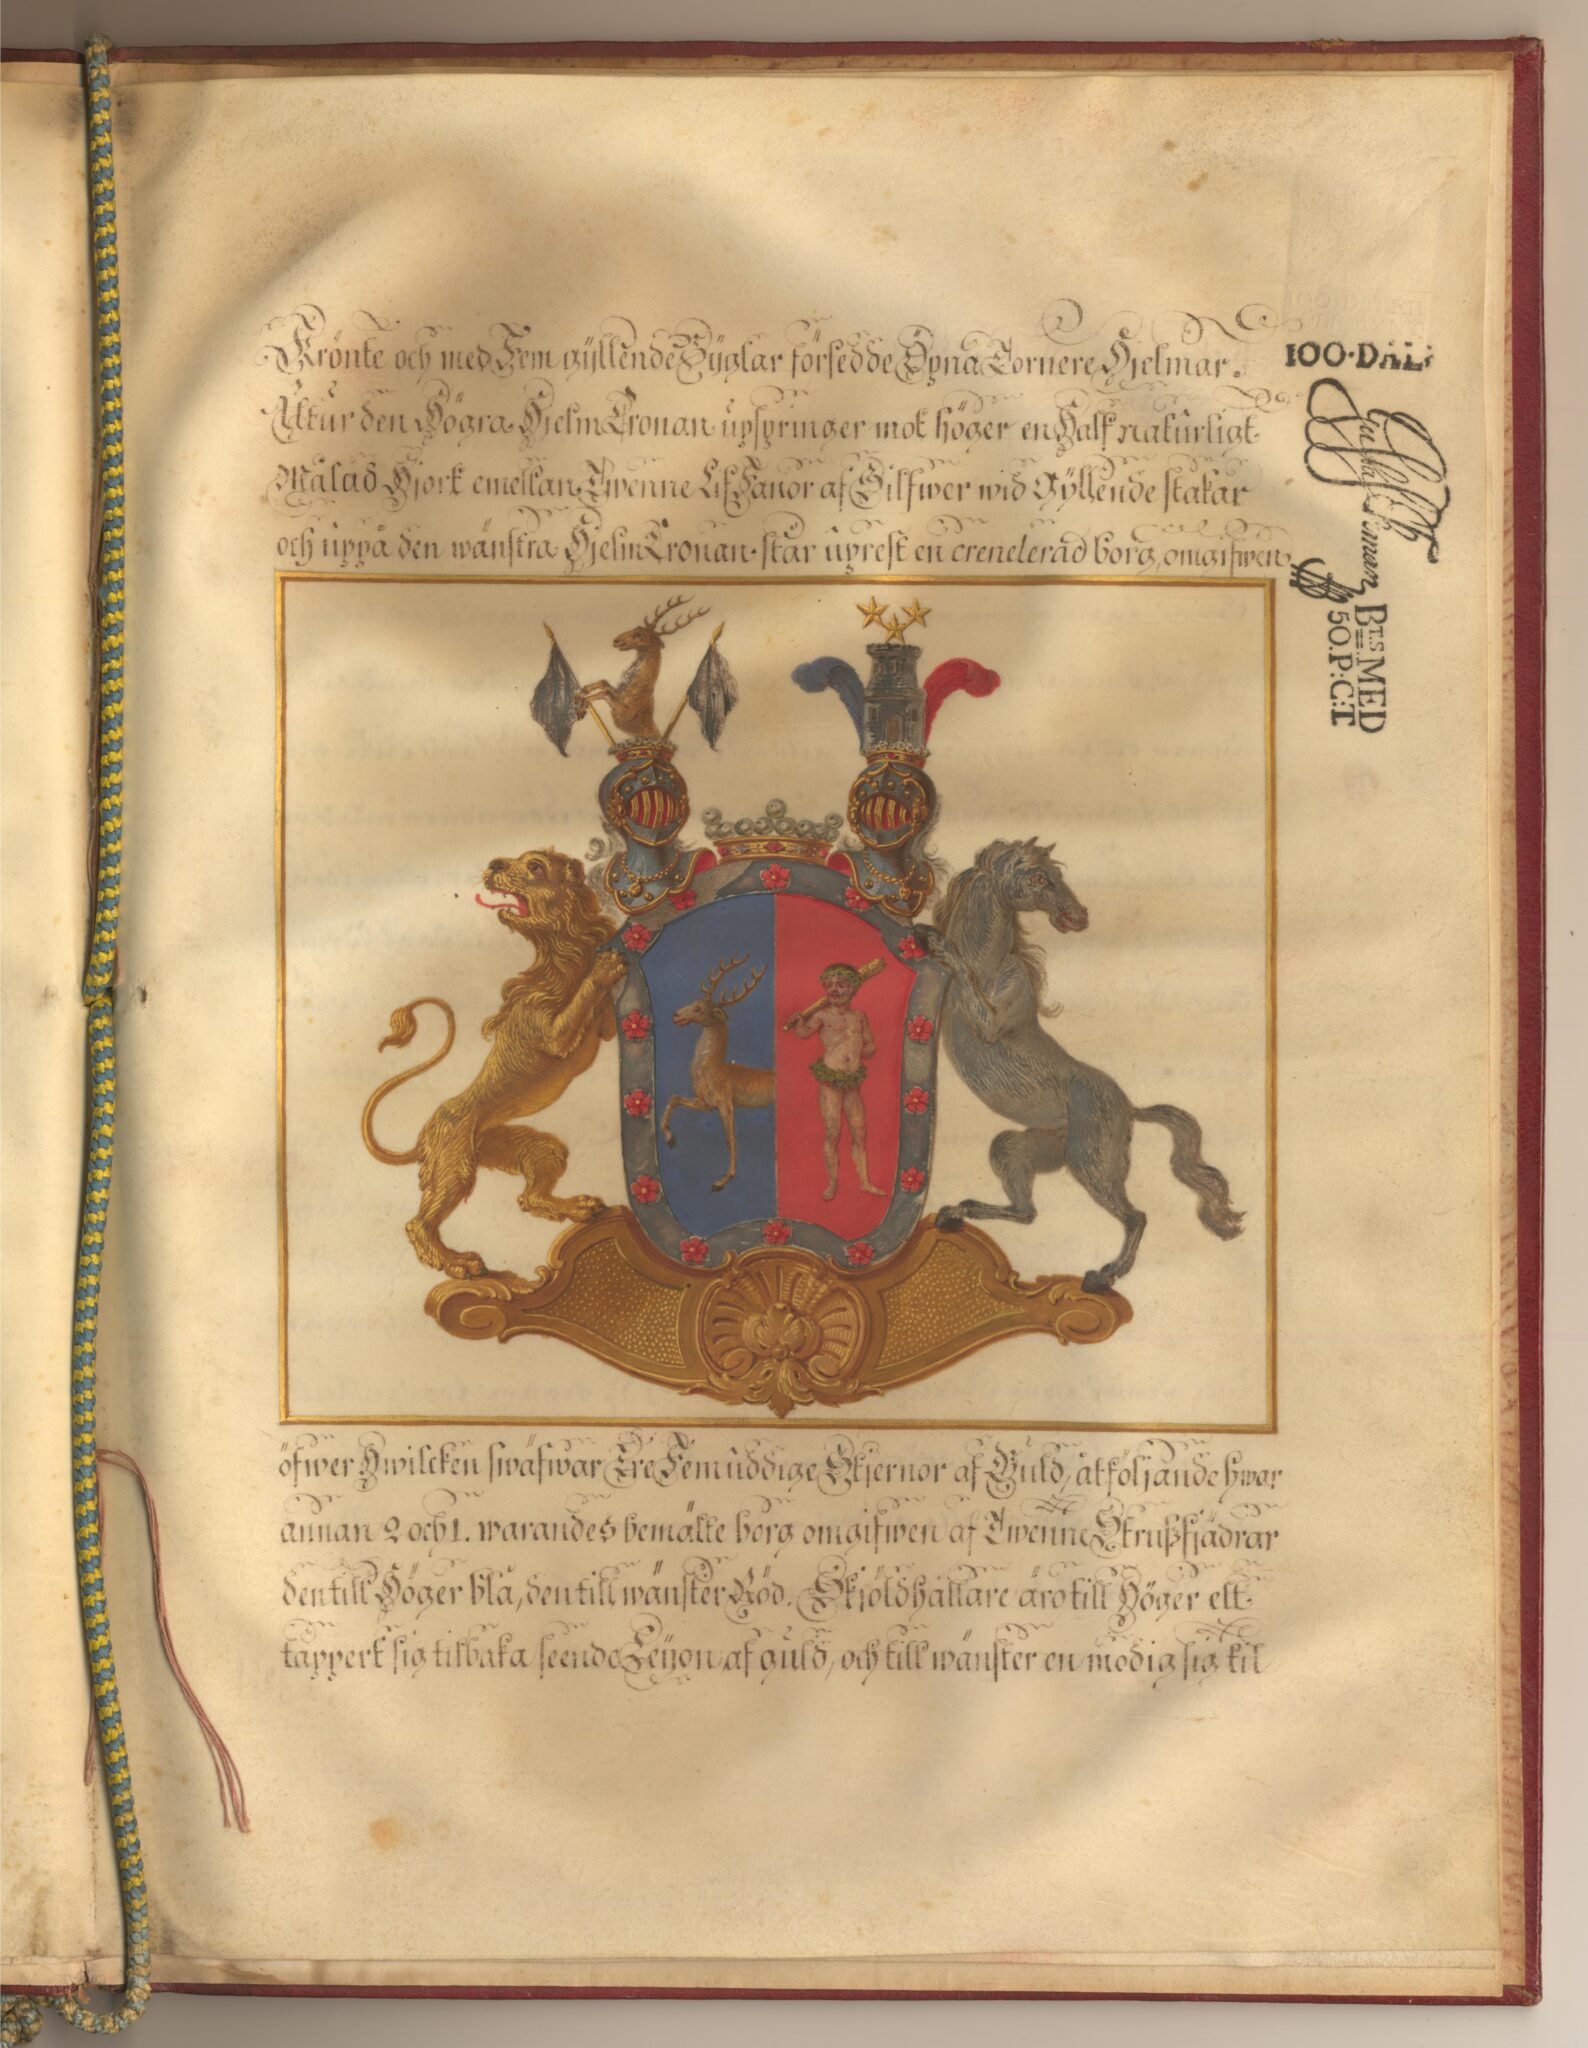 Krönte och med Fem gyllende Byglar försedde Öpna Tornere Hjelmar.
Utur den Högra HjelmCronan upspringer mot höger en Half naturligt
Målad Hjort emellan Twenne LifFanor af Silfwer wid Gyllende stakar
och uppå den wänstra HjelmCronan står uprest en crenelerad borg, omgifwen
öfwer Hwilcken swäfwar Tre Femuddige Stjernor af Guld, åtföljande hwar
annan 2 och 1. warandes bemälte borg omgifwen af Twenne Strußfjädrar
den till Höger blå, den till wänster Röd. Skjöldhållare äro till Höger ett
tappert sig tilbaka seende Leyon af guld, och till wänster en modig sig til
100·DAL:
BTS MED
50.P:C:T